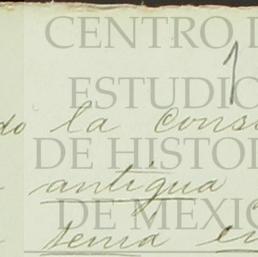 CENTRO D
ESTUDIO
do la cons
DE HISTOR
antigua
DE MEXIC
tema en